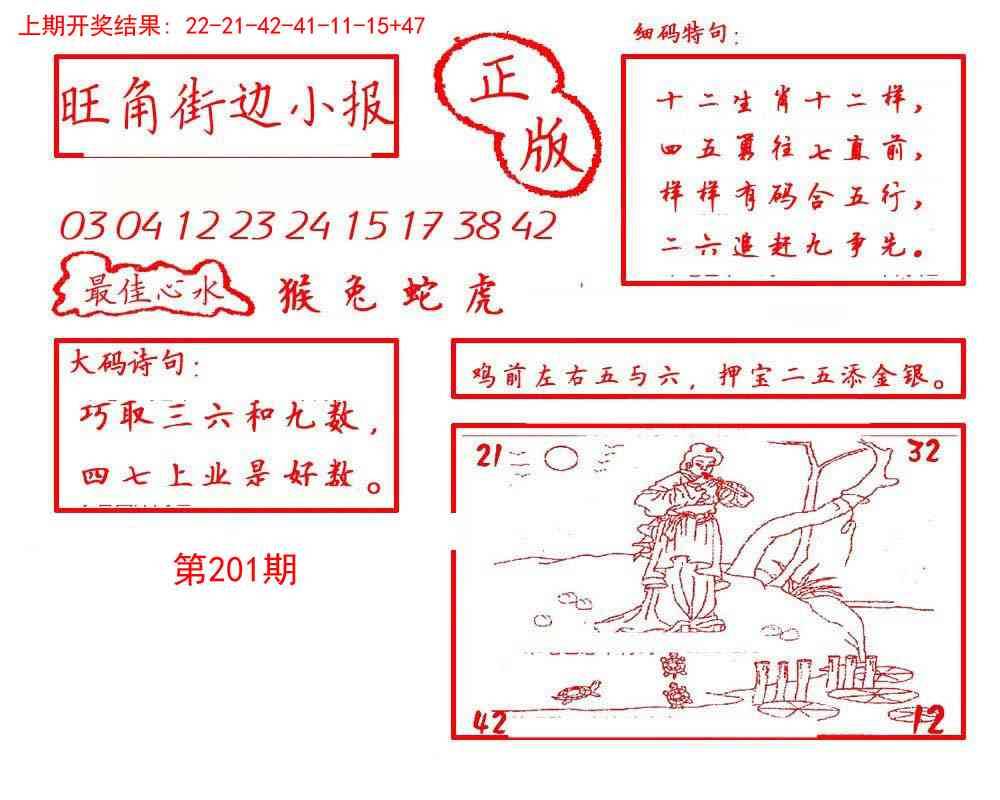 上期开奖结果：22-21-42-41-11-15+47
旺角街边小报
正版
细码特句：
十二生肖十二样，
四五勇往七直前，
样样有码合五行，
二六追赶九争先。
03 04 12 23 24 15 17 38 42
最佳心水
猴兔蛇虎
大码诗句：
巧取三六和九数，
四七上业是好数。
鸡前左右五与六，押宝二五添金银。
21
32
42
12
第201期